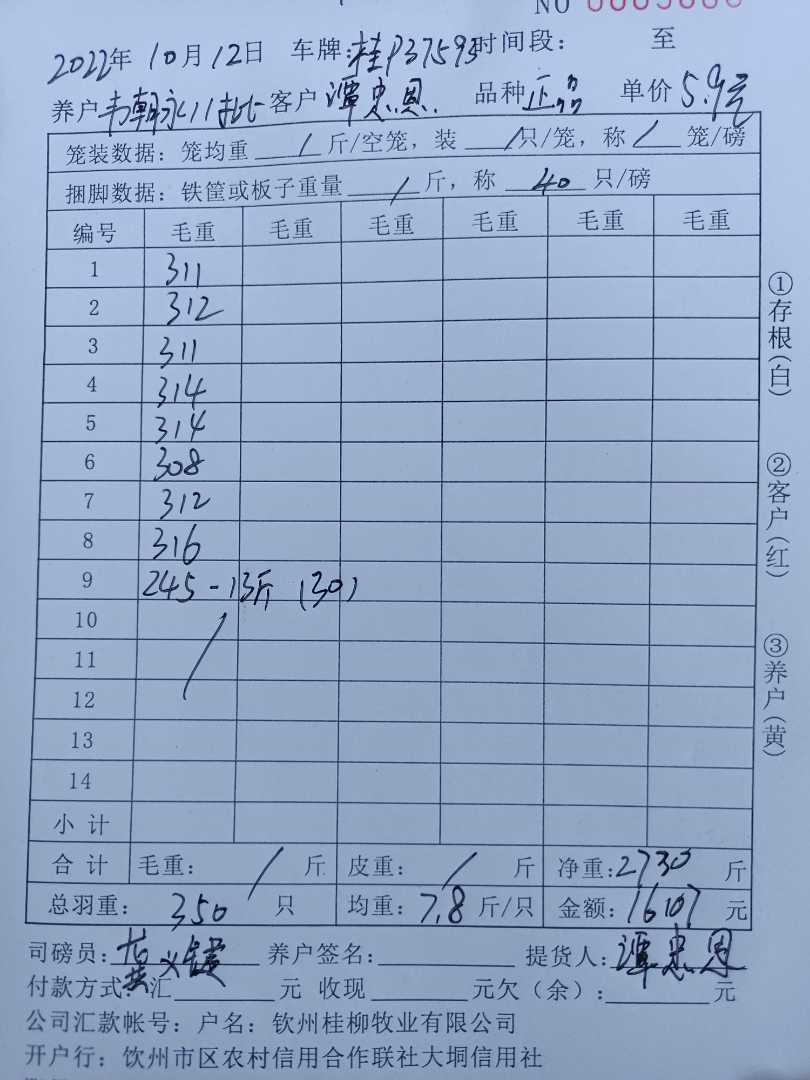 NO
2022年 10月 12日 车牌:桂P37593 时间段: 至
养户 韦朝永11批 客户 谭忠恩 品种 正品 单价 5.9元
笼装数据:笼均重 / 斤/空笼,装 / 只/笼,称 / 笼/磅
捆脚数据:铁筐或板子重量 / 斤,称 40 只/磅
编号 毛重 毛重 毛重 毛重 毛重 毛重
1 311
2 312
3 311
4 314
5 314
6 308
7 312
8 316
9 245-13斤 (30)
10
11
12
13
14
小计
合计 毛重: / 斤 皮重: / 斤 净重:2730 斤
总羽重: 350 只 均重:7.8 斤/只 金额:16107 元
司磅员: 黄 养户签名: 提货人:谭忠恩
付款方式:汇 元 收现 元欠(余): 元
公司汇款帐号:户名:钦州桂柳牧业有限公司
开户行:饮州市区农村信用合作联社大垌信用社
①存根(白)
②客户(红)
③养户(黄)